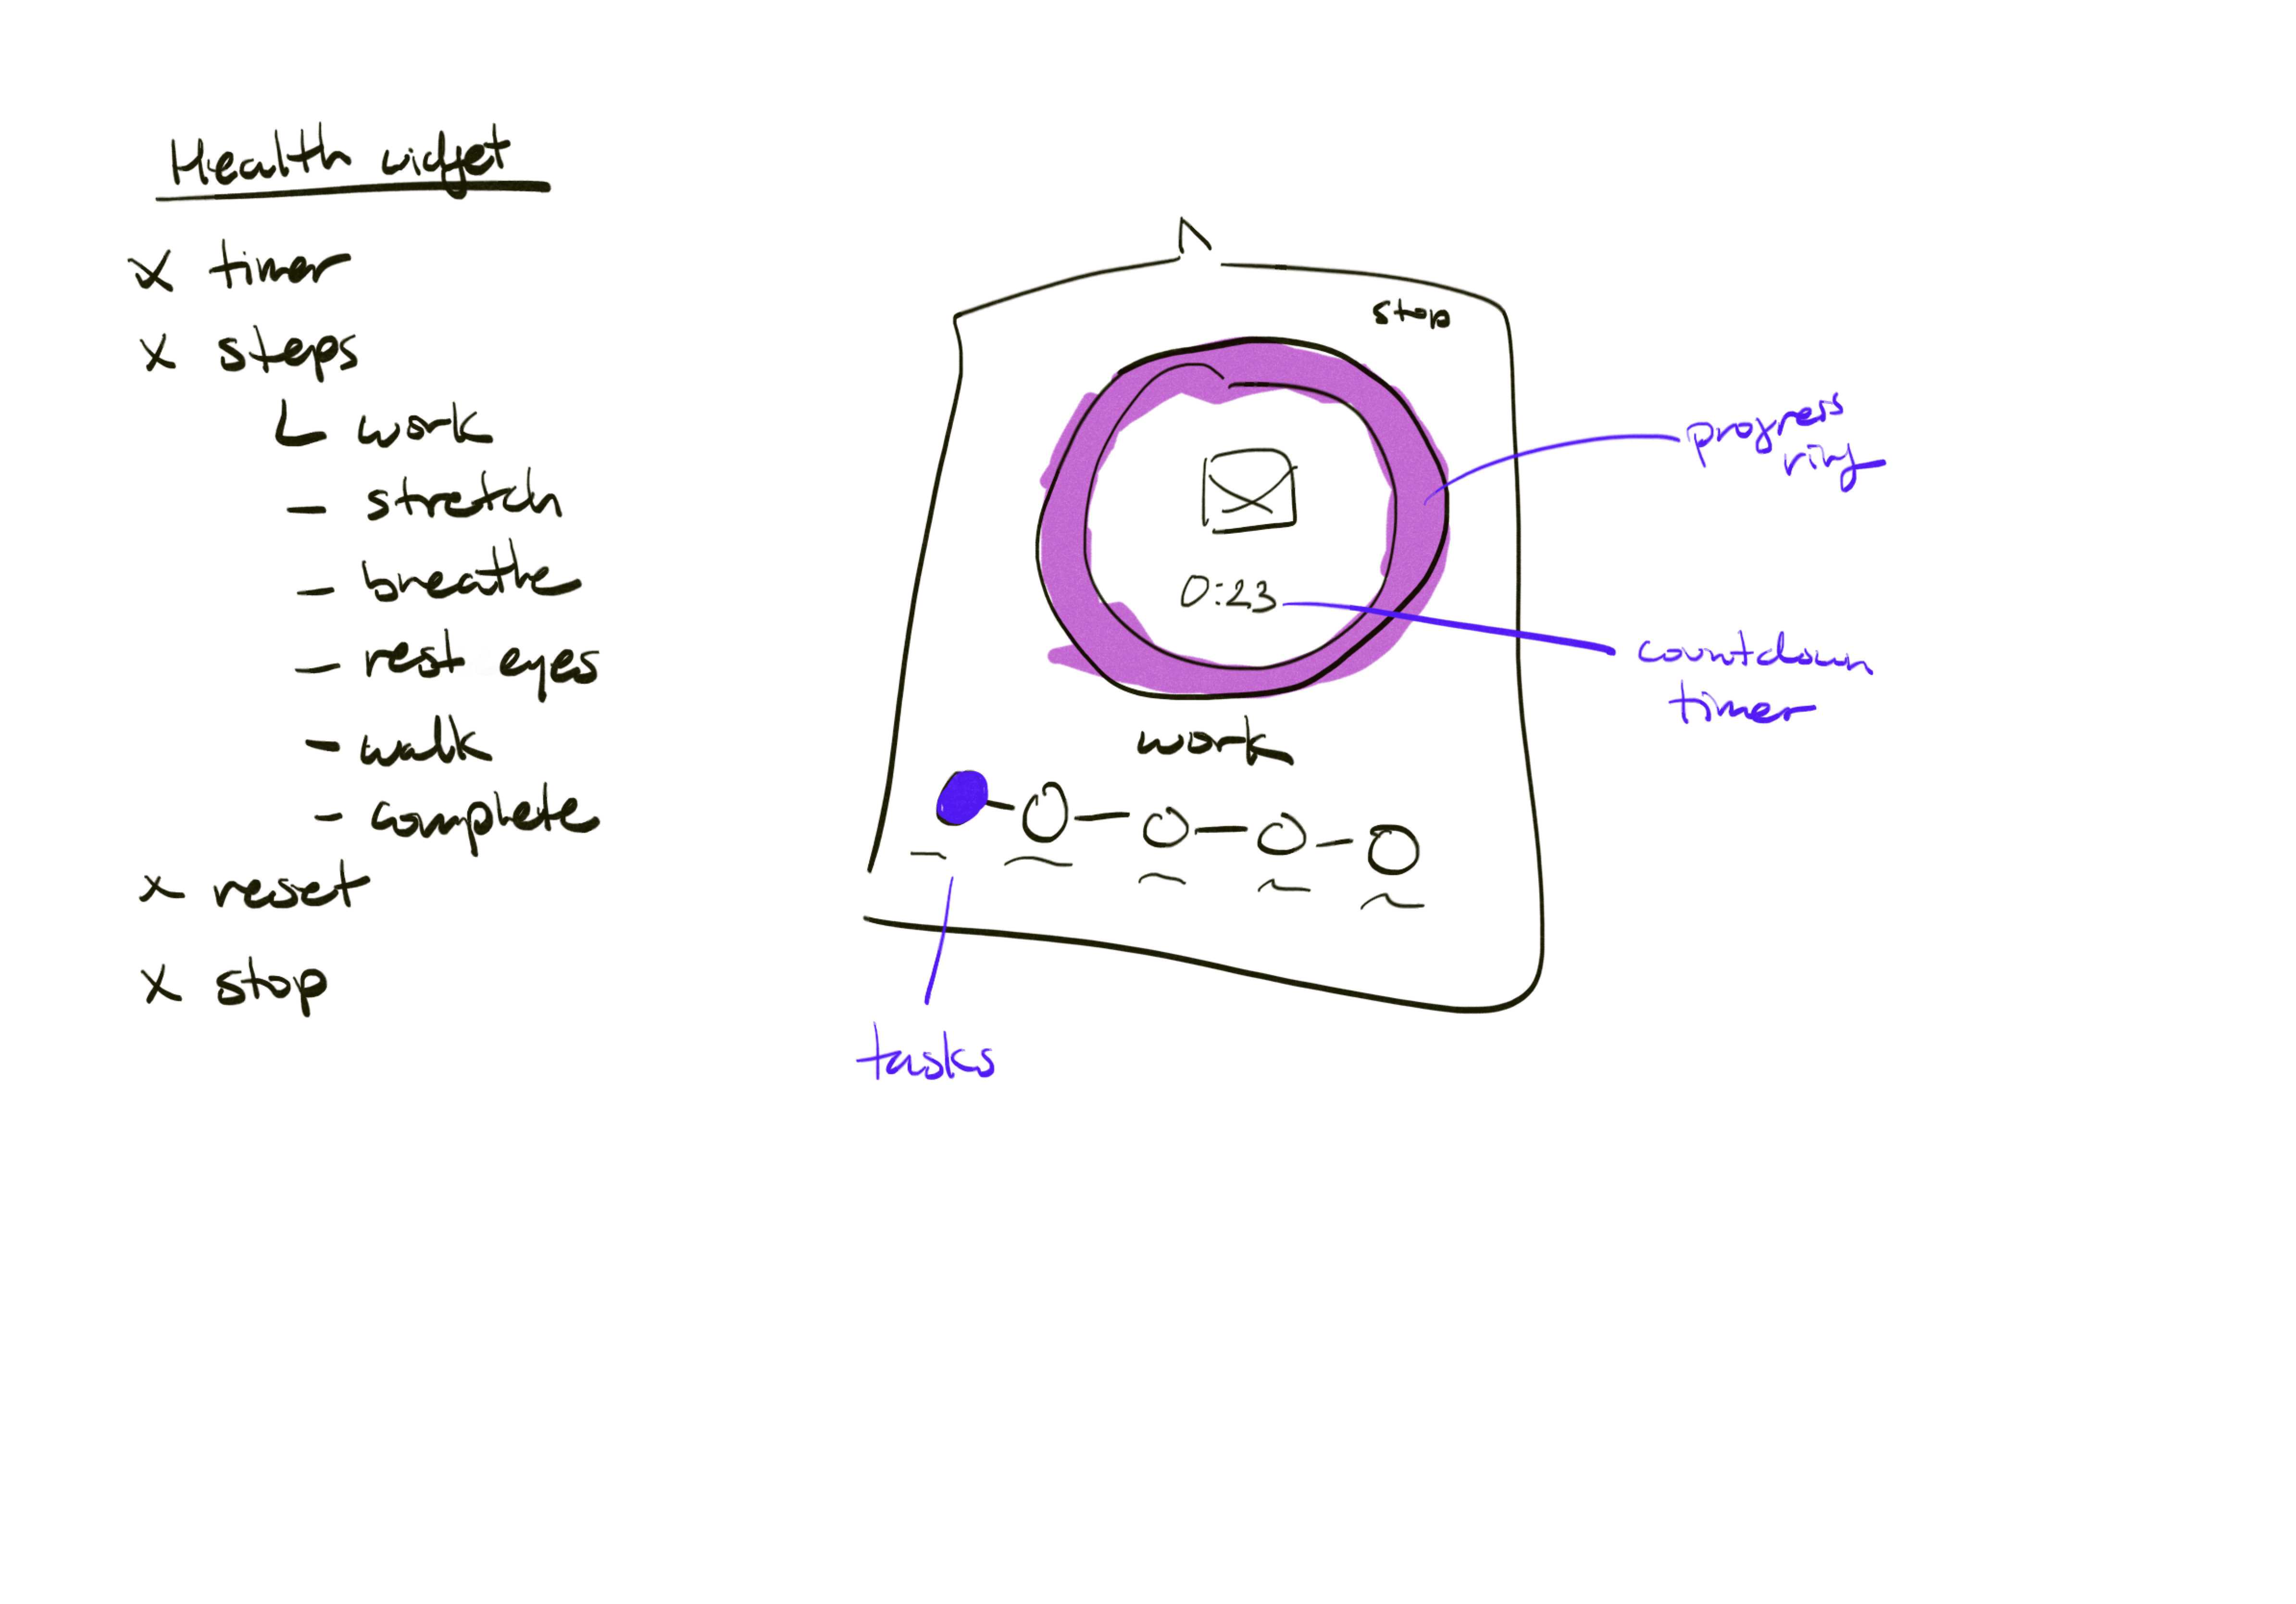 Health widget
x timer
x steps
work
- stretch
- breathe
- rest eyes
- walk
- complete
x reset
x stop
stop
0:23
work
progress
ring
countdown
timer
tasks